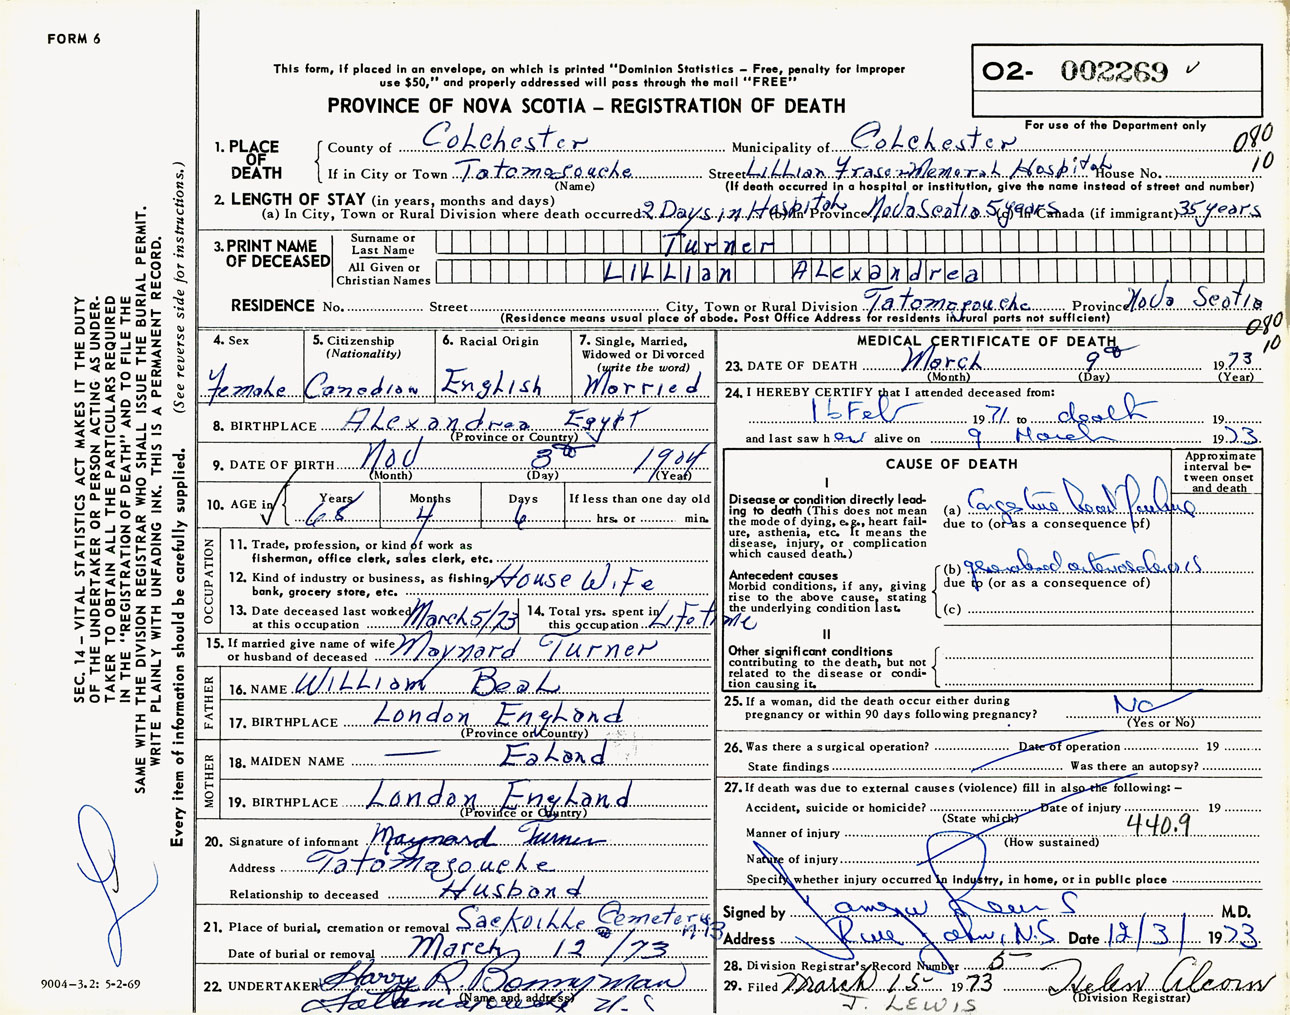 FORM 6
This form, if placed in an envelope, on which is printed "Dominion Statistics – Free, penalty for improper
use $50," and properly addressed will pass through the mail "FREE"
PROVINCE OF NOVA SCOTIA – REGISTRATION OF DEATH
O2- 002269 ✓
For use of the Department only
080
10
1. PLACE OF DEATH
County of Colchester Municipality of Colchester
If in City or Town Tatamagouche Street Lillian Fraser Memorial Hospital House No.
(Name) (If death occurred in a hospital or institution, give the name instead of street and number)
2. LENGTH OF STAY (in years, months and days)
(a) In City, Town or Rural Division where death occurred 2 Days in Hospital (b) In Province Nova Scotia 5 years (c) In Canada (if immigrant) 35 years
3. PRINT NAME OF DECEASED
Surname or Last Name Turner
All Given or Christian Names Lillian Alexandrea
RESIDENCE No. Street City, Town or Rural Division Tatamagouche Province Nova Scotia
(Residence means usual place of abode. Post Office Address for residents in rural parts not sufficient)
080
10
4. Sex Female
5. Citizenship (Nationality) Canadian
6. Racial Origin English
7. Single, Married, Widowed or Divorced (write the word) Married
8. BIRTHPLACE Alexandrea Egypt
(Province or Country)
9. DATE OF BIRTH Nov 3rd 1904
(Month) (Day) (Year)
10. AGE in Years 68 Months 4 Days 6 If less than one day old hrs. or min.
OCCUPATION
11. Trade, profession, or kind of work as
fisherman, office clerk, sales clerk, etc.
12. Kind of industry or business, as fishing, House Wife
bank, grocery store, etc.
13. Date deceased last worked at this occupation March 5/73
14. Total yrs. spent in this occupation Life time
15. If married give name of wife or husband of deceased Maynard Turner
FATHER
16. NAME William Beal
17. BIRTHPLACE London England
(Province or Country)
MOTHER
18. MAIDEN NAME — Ealand
19. BIRTHPLACE London England
(Province or Country)
20. Signature of informant Maynard Turner
Address Tatamagouche
Relationship to deceased Husband
21. Place of burial, cremation or removal Sackville Cemetery N.B
Date of burial or removal March 12/73
22. UNDERTAKER Harry R Bonnyman
(Name and address)
Tatamagouche N. S
MEDICAL CERTIFICATE OF DEATH
23. DATE OF DEATH March 9th 1973
(Month) (Day) (Year)
24. I HEREBY CERTIFY that I attended deceased from:
16 Feb 1971 to death 19
and last saw her alive on 9 March 1973
CAUSE OF DEATH
Approximate interval between onset and death
I
Disease or condition directly leading to death (This does not mean the mode of dying, e.g., heart failure, asthenia, etc. It means the disease, injury, or complication which caused death.)
(a) Congestive heart failure
due to (or as a consequence of)
Antecedent causes
Morbid conditions, if any, giving rise to the above cause, stating the underlying condition last.
(b) generalized arteriosclerosis
due to (or as a consequence of)
(c)
II
Other significant conditions
contributing to the death, but not related to the disease or condition causing it.
25. If a woman, did the death occur either during
pregnancy or within 90 days following pregnancy? No
(Yes or No)
26. Was there a surgical operation? Date of operation 19
State findings Was there an autopsy?
27. If death was due to external causes (violence) fill in also the following: –
Accident, suicide or homicide? Date of injury 19
(State which)
440.9
Manner of injury
(How sustained)
Nature of injury
Specify whether injury occurred in industry, in home, or in public place
Signed by M.D.
Address River John, N.S. Date 12/3/1973
28. Division Registrar's Record Number 5
29. Filed March 15 1973 Helen Alcorn
(Division Registrar)
J. LEWIS
SEC. 14 – VITAL STATISTICS ACT MAKES IT THE DUTY
OF THE UNDERTAKER OR PERSON ACTING AS UNDER-
TAKER TO OBTAIN ALL THE PARTICULARS REQUIRED
IN THE "REGISTRATION OF DEATH" AND TO FILE THE
SAME WITH THE DIVISION REGISTRAR WHO SHALL ISSUE THE BURIAL PERMIT.
WRITE PLAINLY WITH UNFADING INK. THIS IS A PERMANENT RECORD.
Every item of information should be carefully supplied. (See reverse side for instructions.)
9004-3.2: 5-2-69